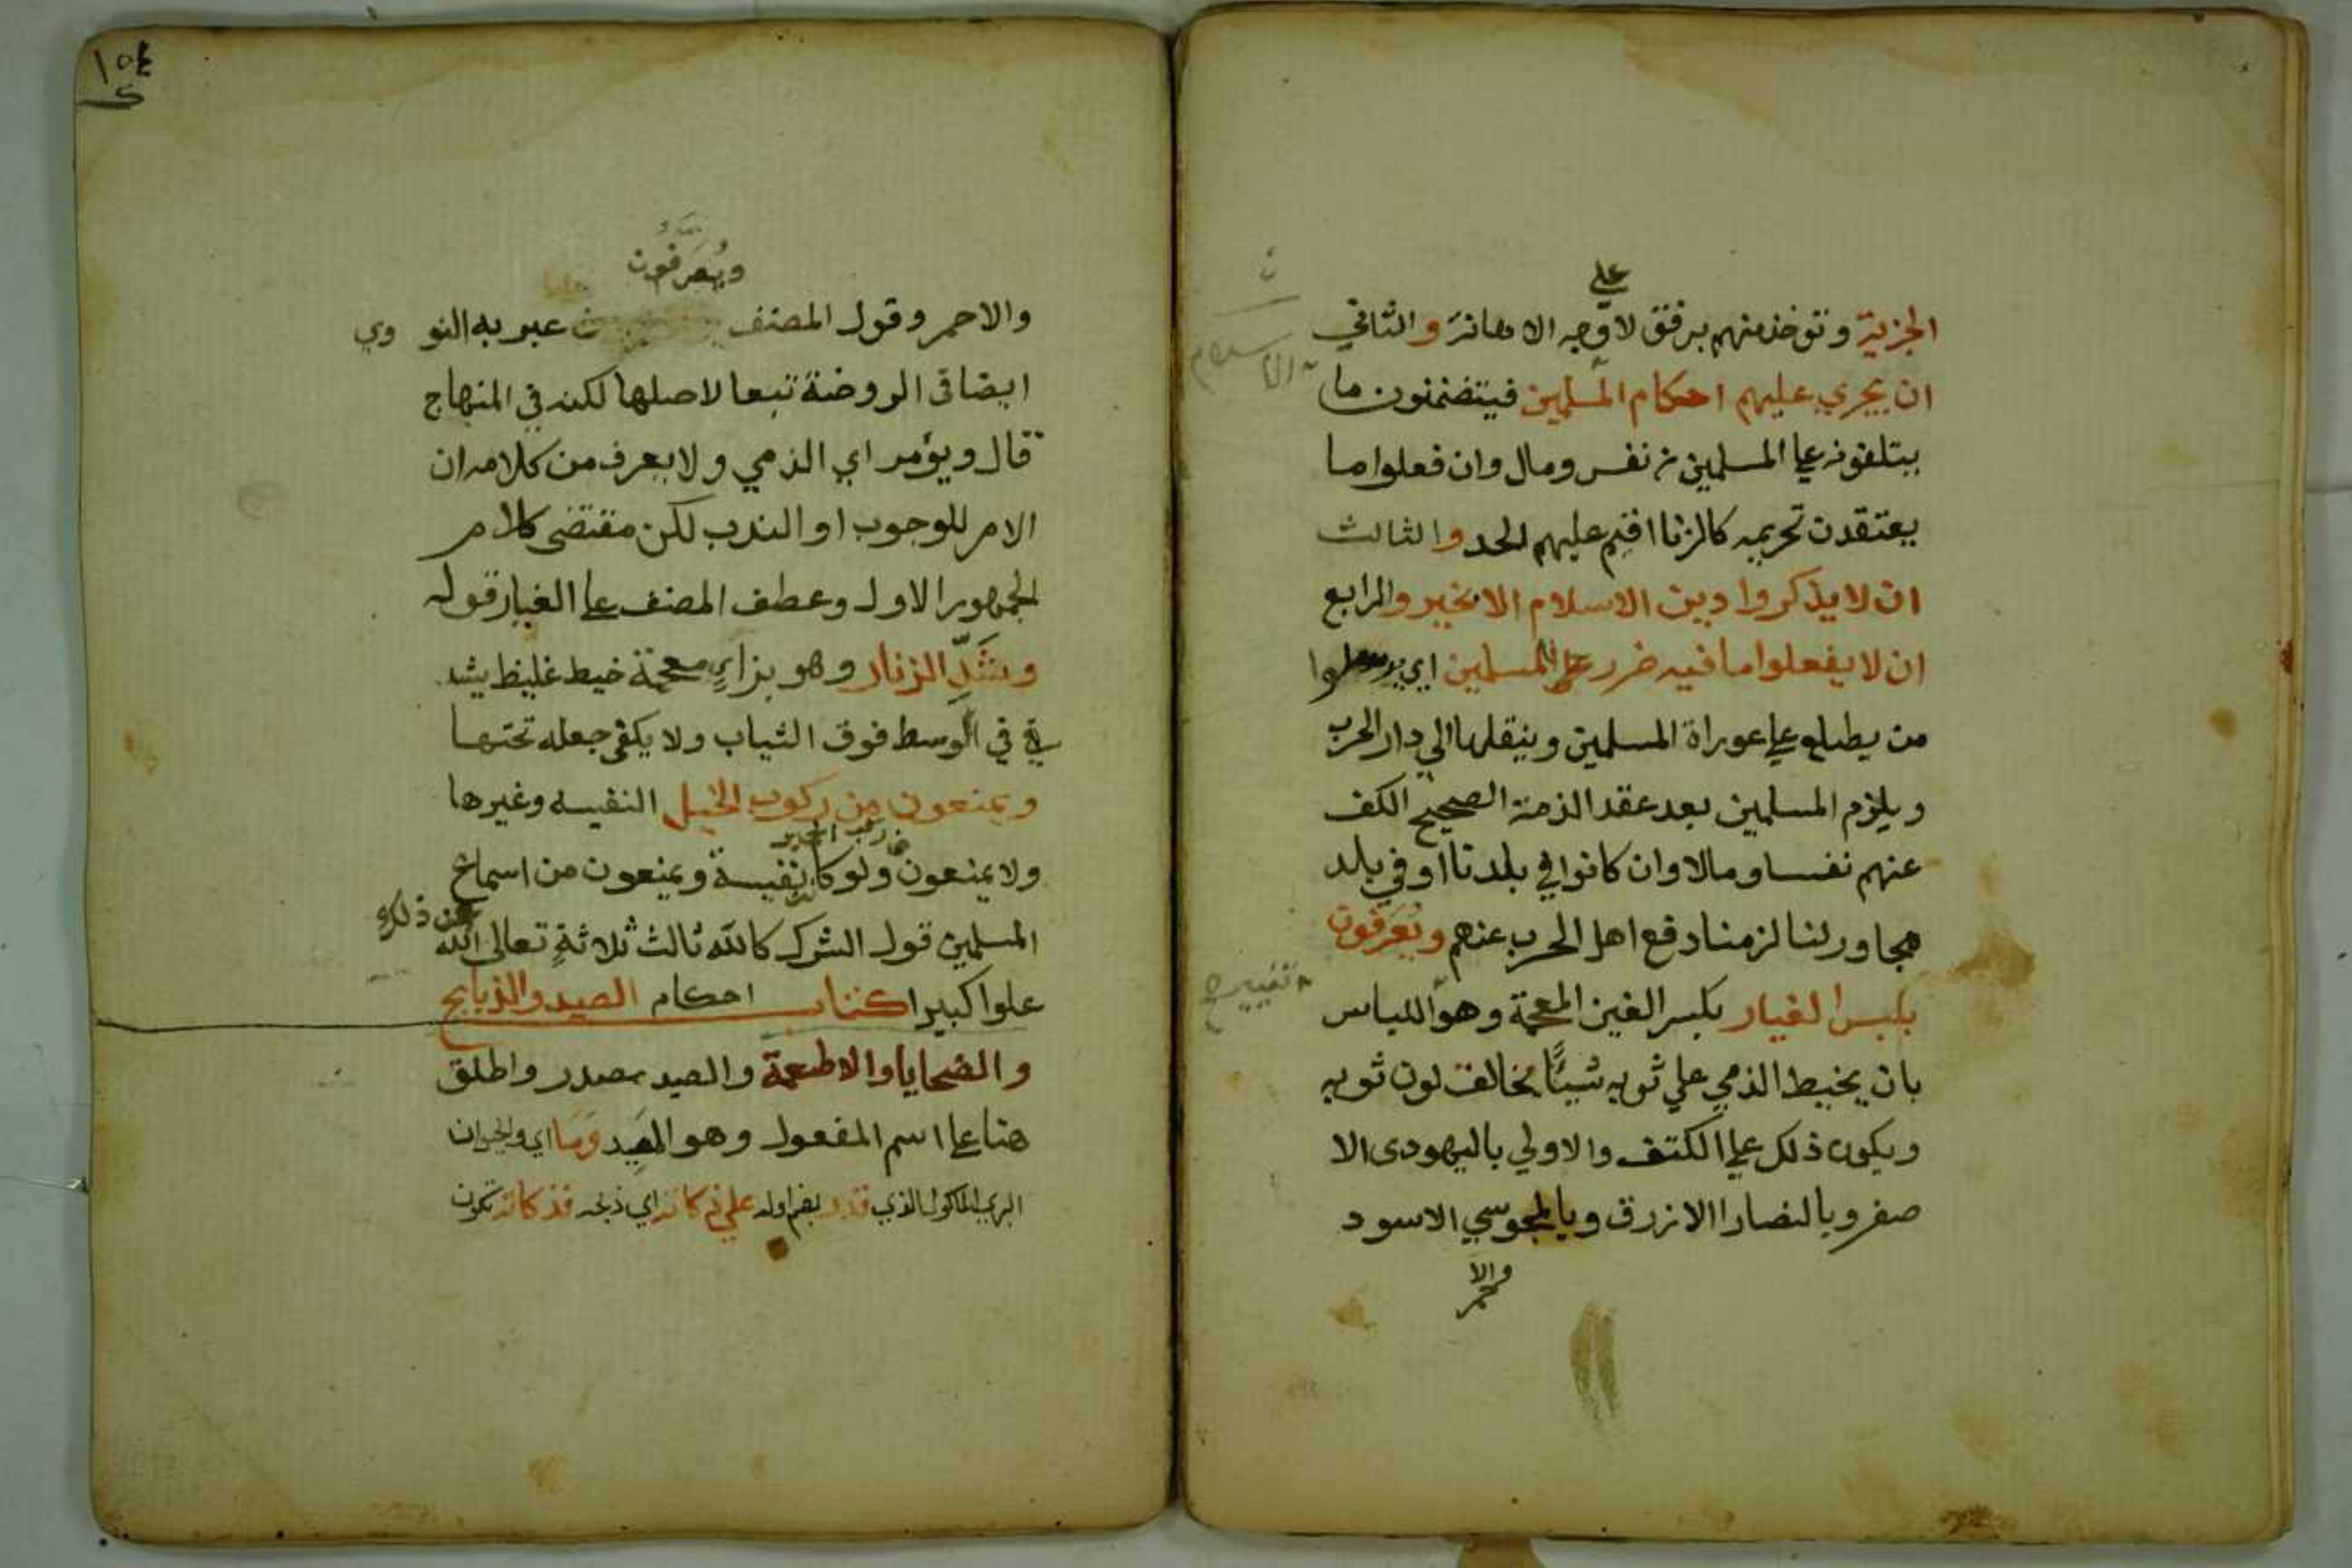 علي
الجزية وتوخذ منهم برفق لا وجه الاهانة والثاني
ان يجري عليهم احكام المسلمين فيتضمنون ما
يبتلفونه علي المسلمين من نفس ومال وان فعلوا ما
يعتقدن تحريمه كالزنا اقيم عليهم الحد والثالث
ان لا يذكروا دين الاسلام الا بخير والرابع
ان لا يفعلوا ما فيه ضرر علي المسلمين اي
من يطلع علي عوراة المسلمين وينقلها الي دار الحرب
ويلزم المسلمين بعد عقد الذمة الصحيح الكف
عنهم نفسا ومالا وان كانوا في بلدنا او في بلد
مجاور لنا لزمنا دفع اهل الحرب عنهم ويعرفون
بلبس الغيار بكسر الغين المعجمة وهو اللباس
بان يخيط الذمي علي ثوبه شيئًا يخالف لون ثوبه
ويكون ذلك علي الكتف والاولي باليهودى الا
صفر وبالنصارا الازرق وبالمجوسي الاسود
والاحمر
١٥٤
ويُعَرَّفُون
والاحمر وقول المصنف عبر به النووي
ايضا فى الروضة تبعا لاصلها لكنه في المنهاج
قال ويؤمر اي الذمي ولا يعرف من كلامه ان
الامر للوجوب او الندب لكن مقتضى كلام
الجمهور الاول وعطف المصنف علي الغيار قوله
وشَدِّ الزنار وهو بزاي معجمة خيط غليظ يشد
في الوسط فوق الثياب ولا يكفي جعله تحتها
ويمنعون من ركوب الخيل النفيسه وغيرها
ولا يمنعون ركوب الحمير ولو كانت نفيسة ويمنعون من اسماع
المسلمين قول الشرك كالله ثالث ثلاثةٍ تعالى الله عن ذلك
علوا كبيرا كتاب احكام الصيد والذبايح
والضحايا والاطعمة والصيد مصدر واطلق
هنا علي اسم المفعول وهو المصيد وما اي والحيوان
البري الماكول الذي قدر بضم اوله علي ذكاته اي ذبحه فذكاته تكون